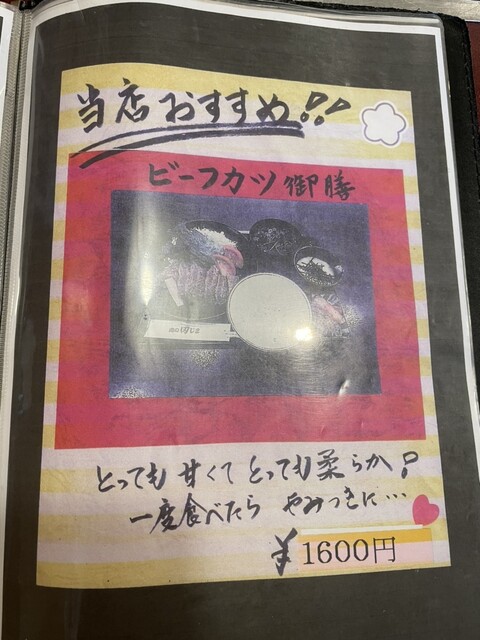 当店おすすめ!!
ビーフカツ御膳
とっても甘くてとっても柔らか!
一度食べたら やみつきに…
¥1600円